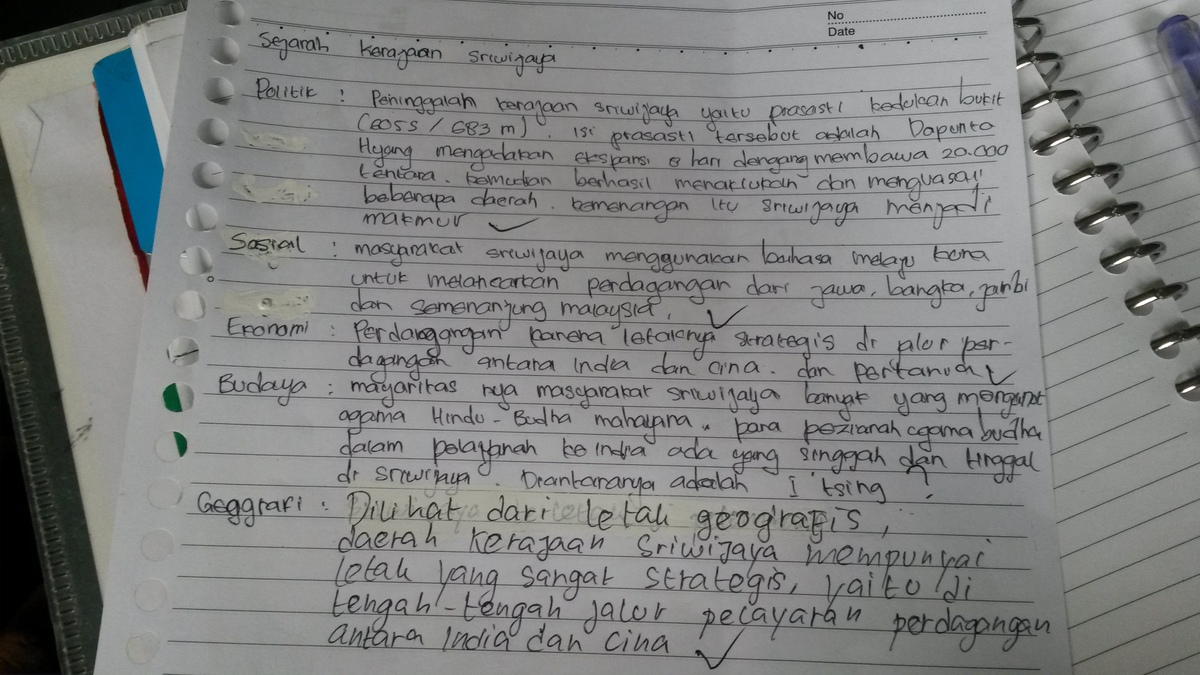 No
Date
Sejarah Kerajaan Sriwijaya
Politik : Peninggalan kerajaan sriwijaya yaitu prasasti kedukan bukit
(605 S / 683 m). isi prasasti tersebut adalah Dapunta
Hyang mengadakan ekspansi 8 hari dengang membawa 20.000
tentara. kemudian berhasil menaklukan dan menguasai
beberapa daerah. kemenangan itu sriwijaya menjadi
makmur
Sosial : masyarakat sriwijaya menggunakan bahasa melayu kuna
untuk melancarkan perdagangan dari jawa, bangka, jambi
dan semenanjung malaysia.
Ekonomi : Perdanggangan karena letaknya strategis di jalur per-
dagangan antara India dan cina. dan pertanian
Budaya : mayaritas nya masyarakat sriwijaya banyak yang menganut
agama Hindu - Budha mahayana. para peziarah agama budha
dalam pelayanah ke india ada yang singgah dan tinggal
di sriwijaya. Diantaranya adalah I 'tsing ?
Geggrafi : Dilihat dari letak geografis,
daerah kerajaan Sriwijaya mempunyai
letak yang sangat strategis, yaitu di
tengah-tengah jalur pelayaran perdagangan
antara India dan cina